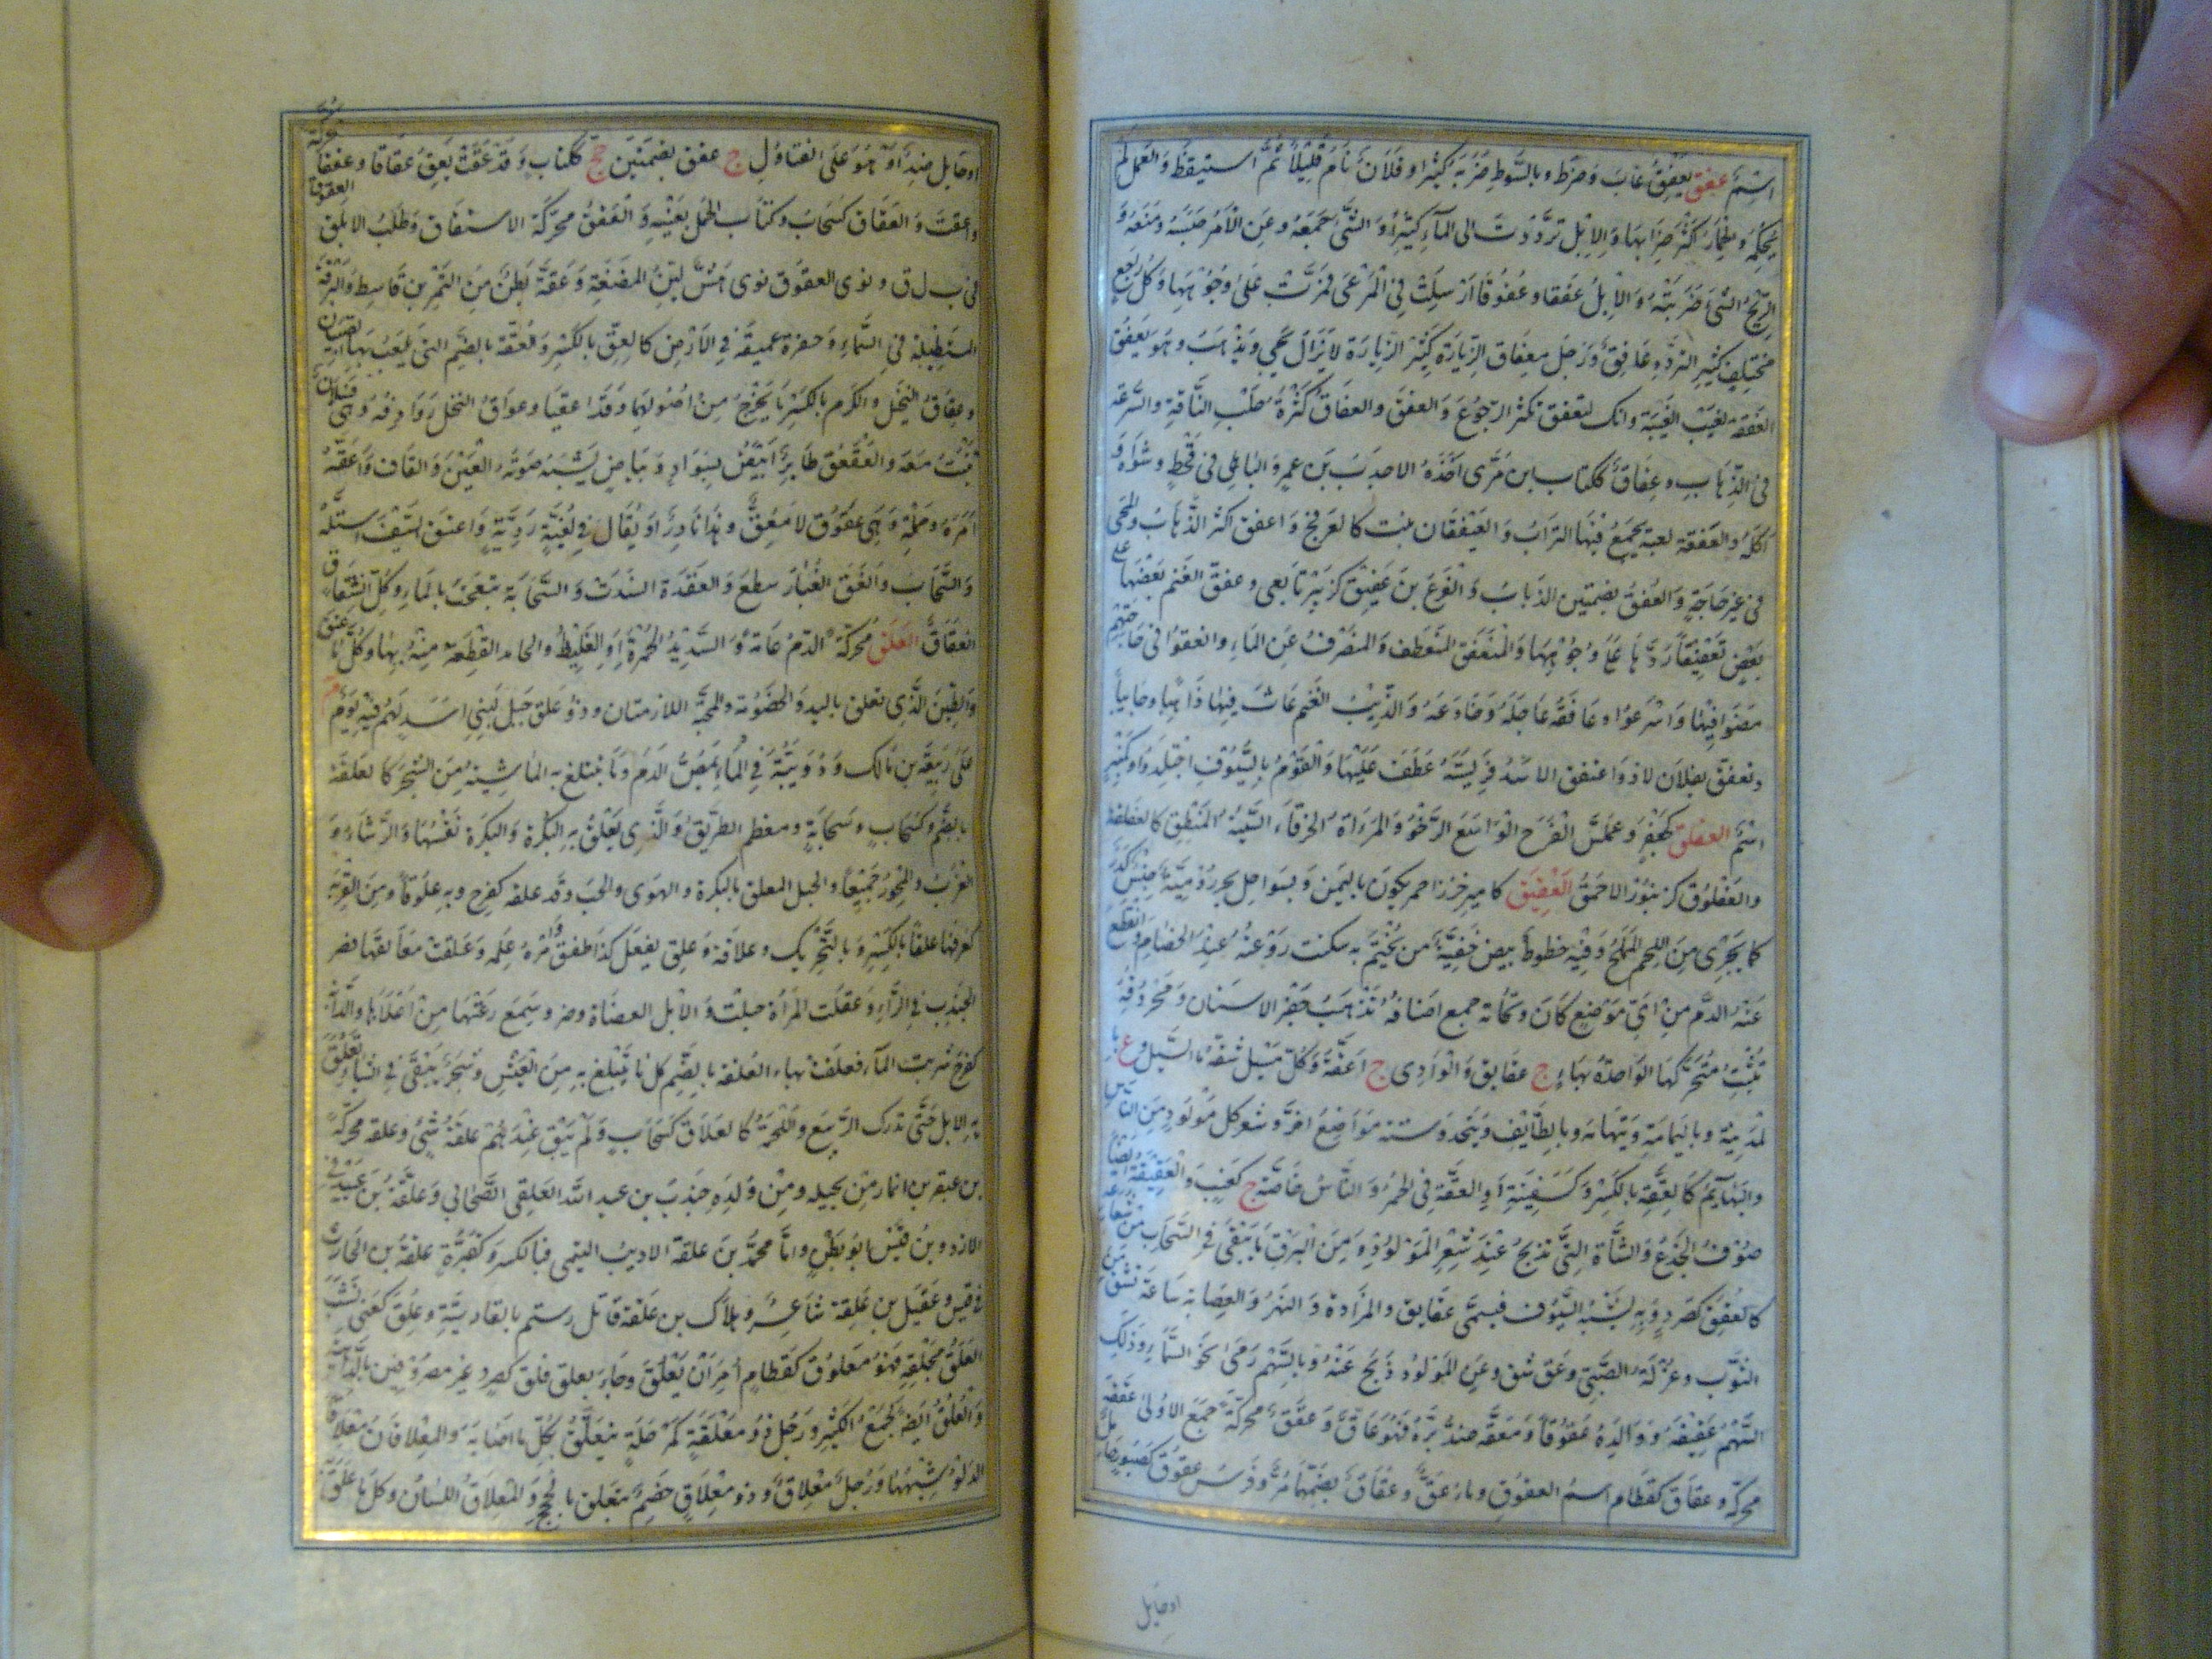 اسم عفق يعفق غاب وضرط وبالسوط ضربه كثيرا وفلان نام قليلا ثم استيقظ والعمل لم
يحكمه والحمار اكثر ضرابها والابل ترددت الى الماء كثيرا والشئ جمعه وعن الامر حبسه ومنعه و
الريح الشئ ضربته والابل عفقا وعفوقا ارسلت في المرعى فمرت على وجوهها وكل راجع
مختلف كثير التردد عافق ورجل معفاق الزيارة كثير الزيارة لا يزال يجئ ويذهب وهو يعفق
العفقة يغيب الغيبة وانك لتعفق تكثر الرجوع والعفق والعفاق كثرة حلب الناقة والسرعة
في الذهاب وعفاق ككتاب ابن مرى اخذه الاحدب بن عمرو الباهلي في قحط وشواه و
اكله والعفقة لعبة يجمع فيها التراب والعيفقان نبت كالعرفج واعفق اكثر الذهاب والمجئ
في غير حاجة والعفق بضمتين الذباب والفرع بن عفيق كزبير تابعي وعفق الغنم بعضها على
بعض تعفيقا ردها على وجوهها والمنعفق المنعطف والمنصرف عن الماء وانعفقوا في حاجتهم
مضوا فيها واسرعوا وعافقه عالجه وخادعه والذئب الغنم عاث فيها ذاهبا وجائيا
وتعفق بفلان لاذ واعتفق الاسد فريسته عطف عليها والقوم بالسيوف اجتلدوا وكزبير
اسم العفلق كجعفر وعملس الفرج الواسع الرخو والمراة الخرقاء السيئة المنطق كالعفلقة
والعفلوق كزنبور الاحمق العقيق كامير خرز احمر يكون باليمن وبسواحل بحر رومية جنس كدر
كما يجرى من اللحم المملح وفيه خطوط بيض خفية من تختم به سكنت روعته عند الخصام وانقطع
عنه الدم من اى موضع كان ونحاتة جميع اصنافه تذهب حفر الاسنان ومحروقه
يثبت متحركها الواحدة بهاء ج عقايق والوادى ج اعقة وكل مسيل شقه ماء السيل وع با
لمدينة وباليمامة وبتهامة وبالطايف وبنجد وستة مواضع اخر وشعر كل مولود من الناس
والبهايم كالعقة بالكسر وكسفينة او العقة في الحمر والناس خاصة ج كعنب والعقيقة ايضا
صوف الجذع والشاة التي تذبح عند شعر المولود ومن البرق ما يبقى في السحاب من شعاعه
كالعقق كصرد وبه يشبه السيوف فيسمى عقايق والمزادة والنهر والعصابة ساعة تشق من
الثوب وغرلة الصبي وعق شق وعن المولود ذبح عنه وبالسهم رمى نحو السماء وذلك
السهم عقيقة ووالده عقوقا ومعقة ضد بره فهو عاق وعقق محركة جمع الاولى عققة
محركة وعقاق كقطام اسم العقوق وماء عق وعقاق بضمهما مر وفرس عقوق كصبور حائل
اوحايل
اوحايل ضد او هو على التفاؤل ج عقق بضمتين جج ككتاب وقد عقت تعق عقاقا وعققا محركة
واعقت والعقاق كسحاب وكتاب الحمل بعينه والعقق محركة الانشقاق وطلب الابلق العقوق
في ب ل ق ونوى العقوق نوى هش لين الممضغة وعقة بطن من النمر بن قاسط والبرقة
المستطيلة في السماء وحفرة عميقة في الارض كالعق بالكسر والعقة بالضم التي يلعب بها الصبيان
وعقاق النخل والكرم بالكسر ما يخرج من اصولهما وقد اعقتا وعواق النخل روادفه وهى فسلان
تنبت معه والعقعق طاير ابيض بسواد وبياض يشبه صوته العين والقاف واعقه
امره وحملت وهى عقوق لا معق وهذا نادر او يقال في لغية رديئة واعتق السيف استله
والسحاب وانعق الغبار سطع والعقدة انشدت والسحابة تبعجت بالماء وكل انشقاق
انعقاق العلق محركة الدم عامة او الشديد الحمرة او الغليظ والجامد القطعة منه بهاء وكل ما علق
والطين الذى تعلق باليد والخصومة والمحبة اللازمتان وذو علق جبل لبني اسد لهم فيه يوم م
على ربيعة بن مالك ودويبة في الماء تمص الدم وما تتبلغ به الماشية من الشجر كالعلقة
بالضم وكسحاب وسحابة ومعظم الطريق والذى يعلق به البكرة والبكرة نفسها والرشاء و
الغرب والمحور جميعا والحبل المعلق بالبكرة والهوى والحب وقد علقه كفرح وبه علوقا ومن القربة
كعرقها علقا بالكسر وبالتحريك وعلاقة وعلق يفعل كذا طفق وامره علمه وعلقت معالقها وصر
الجندب في الراء وعلقت المراة حبلت والابل العضاة كنصر وسمع رعتها من اعلاها والدابة
كفرح شربت الماء فعلقت بها العلقة بالضم كل ما يتبلغ به من العيش وشجر يبقى في الشتاء وتعلق
به الابل حتى تدرك الربيع واللمجة كالعلاق كسحاب ولم يبق عندهم علقة شئ وعلقة محركة
بن عبقر بن انمار من بجيلة ومن ولده جندب بن عبد الله العلقى الصحابي وعلقة بن عبيد في
الازد وبن قيس ابو بطن واما محمد بن علقة الاديب التيمي فبالكسر وكقبرة علقة بن الحارث
في قيس وعقيل بن علقة شاعر وهلال بن علقة قاتل رستم بالقادسية وعلق كعنى نشب
العلق بحلقه فهو معلوق كقطام امر اى تعلق وجاء بعلق فلق كصرد غير مصروفين بالداهية
والعلق ايضا الجمع الكثير ورجل ذو معلقة كمرحلة يتعلق بكل ما اصابه والمعلاقان معلاقا
الدلو وشبهها ورجل معلاق وذو معلاق خصم يتعلق بالحجج والمعلاق اللسان وكل ما علق